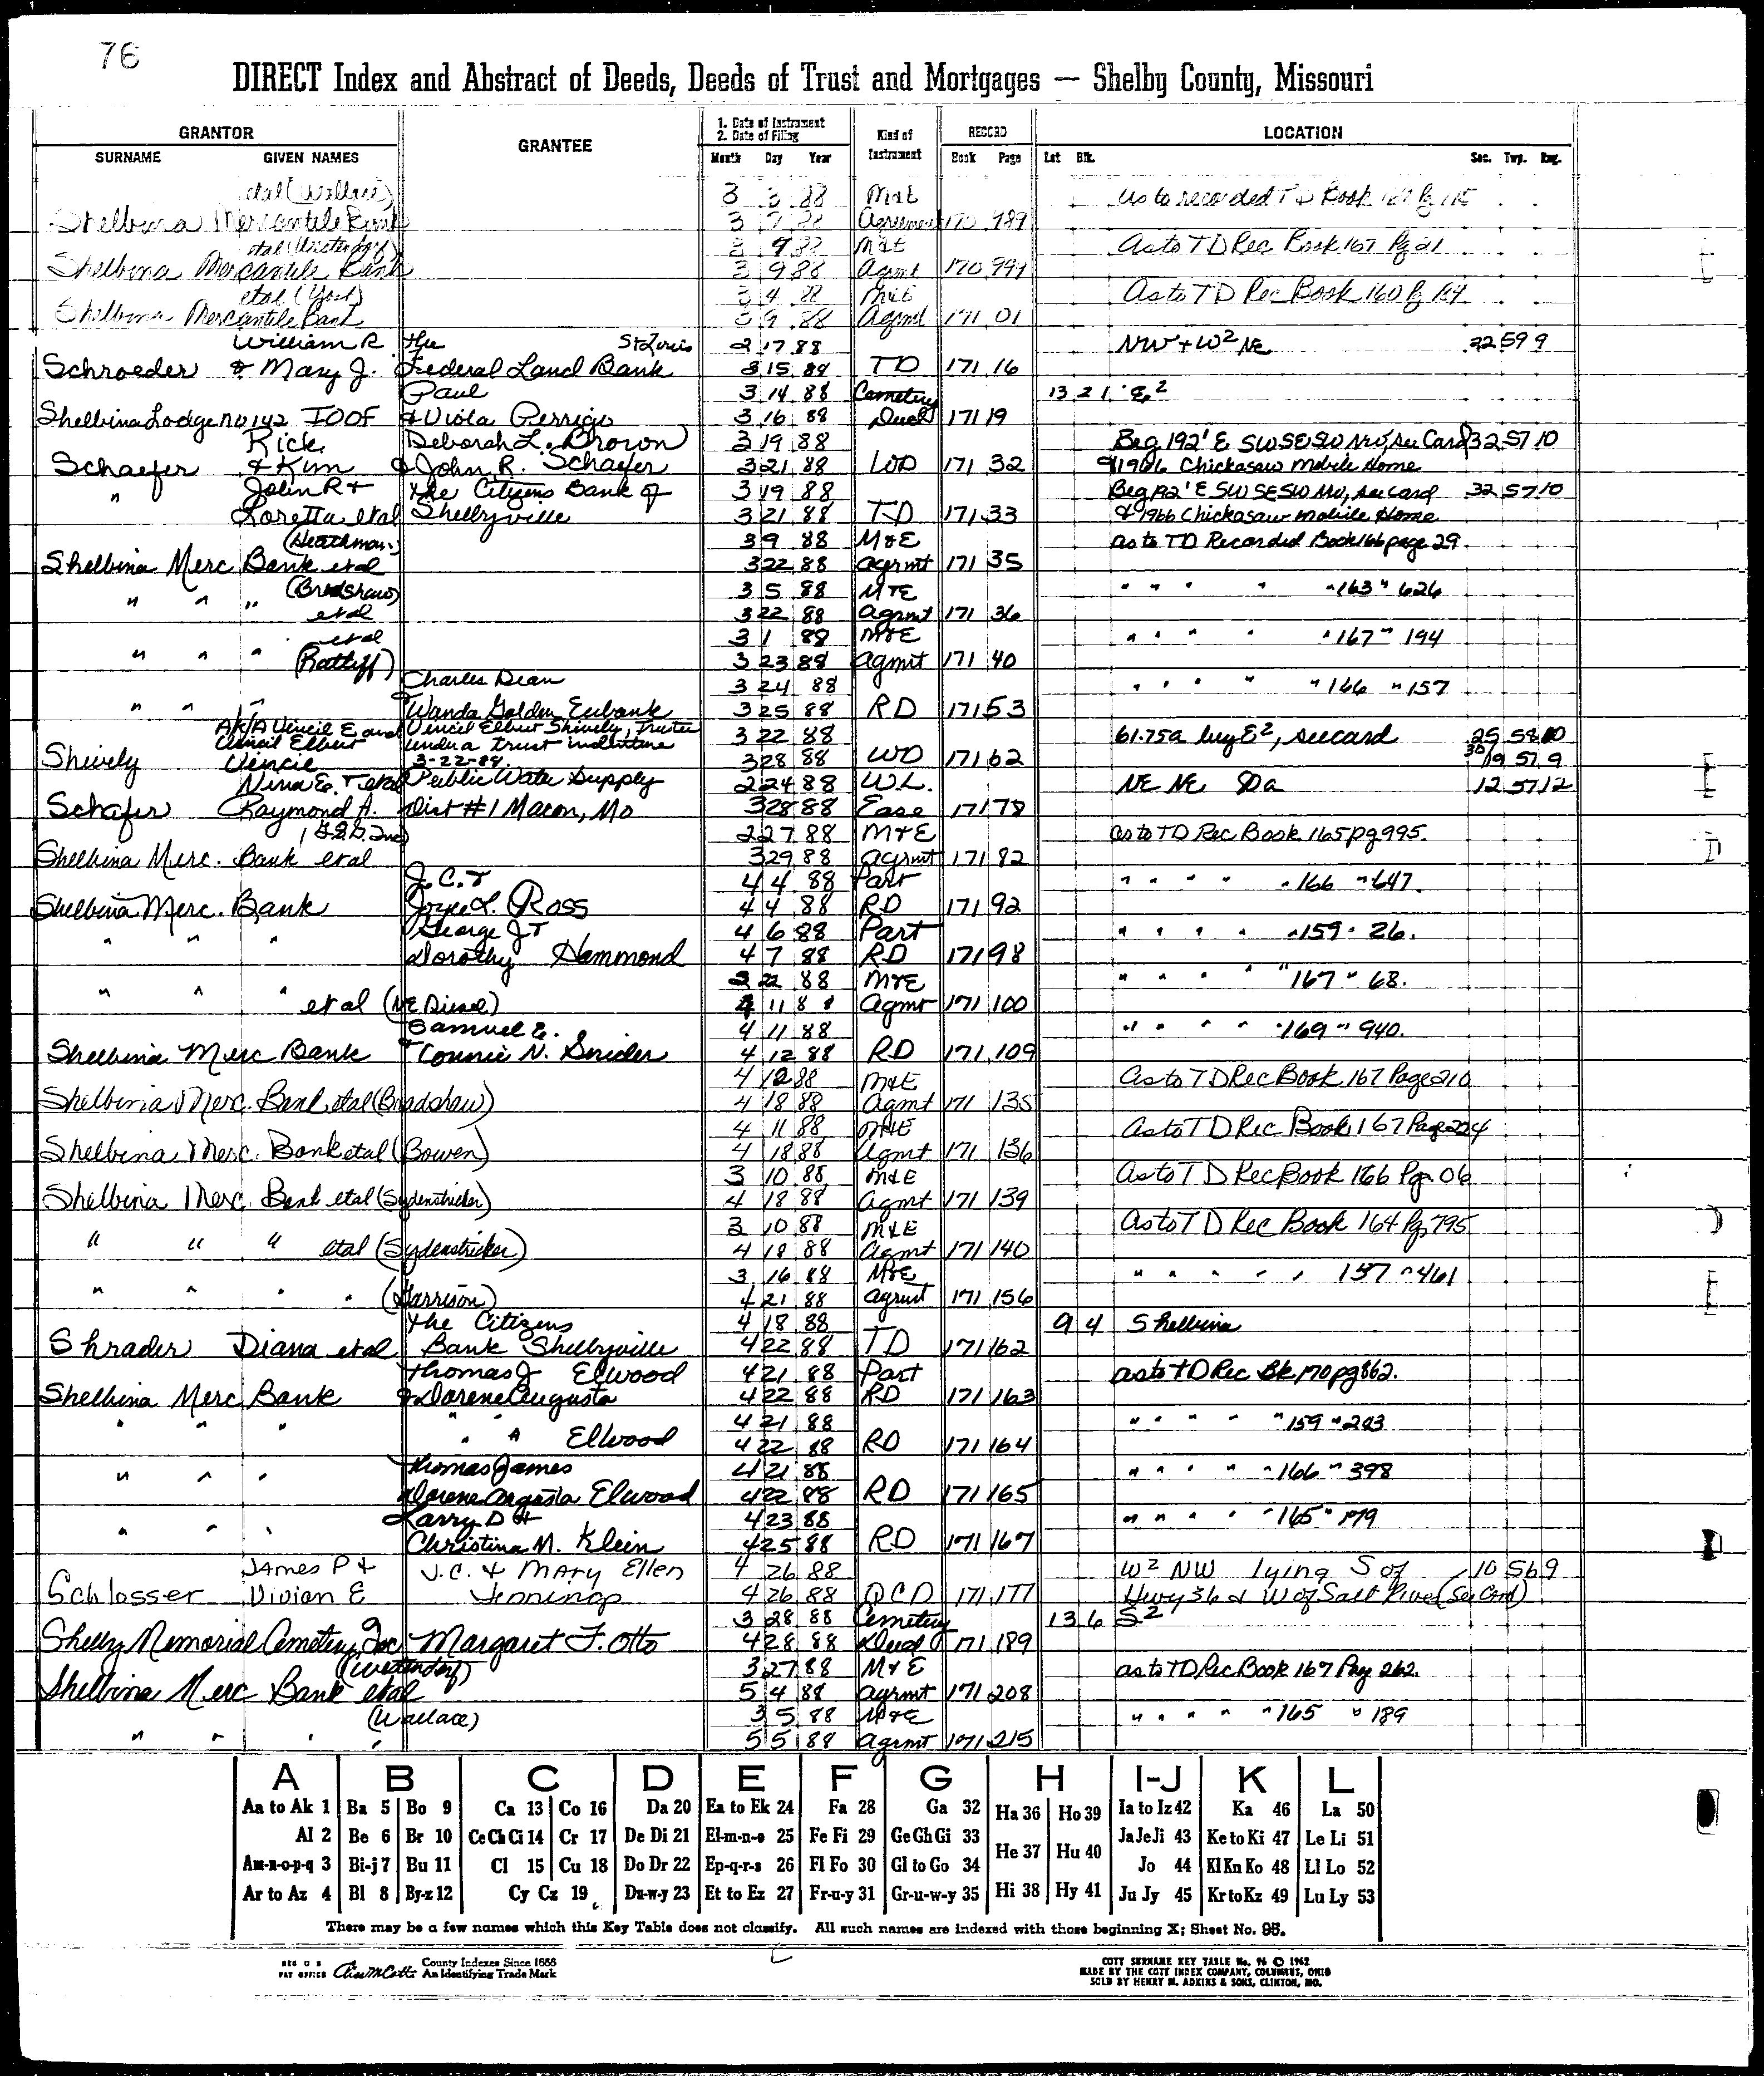 76
DIRECT Index and Abstract of Deeds, Deeds of Trust and Mortgages — Shelby County, Missouri
GRANTOR GRANTEE 1. Date of Instrument 2. Date of Filing Kind of Instrument RECORD LOCATION
SURNAME GIVEN NAMES Month Day Year Book Page Lot Blk. Sec. Twp. Rng.
etal (Wallace) 3 3 88 M&E As to recorded TD Book Pg
Shelbina Mercantile Bank 3 7 88 Agreement 170 989
etal 3 9 88 M&E As to TD Rec Book 167 Pg 21
Shelbina Mercantile Bank 3 9 88 Agmt 170 991
etal (York) 3 4 88 M&E As to TD Rec Book 160 Pg 184
Shelbina Mercantile Bank 3 9 88 Agmt 171 01
William R The St Louis 2 17 88 NW + W2 NE 22 59 9
Schroeder & Mary J. Federal Land Bank 3 15 88 TD 171 16
Paul 3 14 88 Cemetery 13 21 E2
Shelbina Lodge no 142 IOOF & Viola Perrigo 3 16 88 Deed 171 19
Rick Deborah L. Brown 3 19 88 Beg 192' E SW SE SW NW, See Card 32 57 10
Schaefer & Kim & John R. Schaefer 3 21 88 WD 171 32 & 1966 Chickasaw Mobile Home
" John R + The Citizens Bank of 3 19 88 Beg 192' E SW SE SW NW, See Card 32 57 10
Loretta etal Shelbyville 3 21 88 TD 171 33 & 1966 Chickasaw Mobile Home
(Heathman) 3 9 88 M&E as to TD Recorded Book 166 page 29
Shelbina Merc Bank etal 3 22 88 Agrmt 171 35
" " " (Bradshaw) 3 5 88 M&E " " " " " 163 " 626
etal 3 22 88 Agrmt 171 36
etal 3 1 88 M&E " " " " " 167 " 194
" " " (Ratliff) 3 23 88 Agmt 171 40
Charles Dean 3 24 88 " " " " " 166 " 157
" " " & Wanda Golden Eubank 3 25 88 RD 171 53
AKA Vincil E and Vincil Elbert Shively, Trustee 3 22 88 61.75a lying E2, see card 25 58 10
Vincil Elbert under a trust indenture
Shively Vincil 3-22-88 3 28 88 WD 171 62 30/19 57 9
Nina E. + etal Public Water Supply 2 24 88 W.L. NE NE 80a 12 57 12
Schafer Raymond A. Dist #1 Macon, Mo 3 28 88 Ease 171 78
2 27 88 M&E as to TD Rec Book 165 pg 995.
Shelbina Merc. Bank etal 3 29 88 Agrmt 171 82
J.C. + 4 4 88 Part " " " " " 166 " 647.
Shelbina Merc. Bank Joyce L. Ross 4 4 88 RD 171 92
George J + 4 6 88 Part " " " " " 159 " 26.
" " " Dorothy Hammond 4 7 88 RD 171 98
22 88 M&E " " " " " 167 " 68.
" " " etal (NE Diesel) 4 11 88 Agmt 171 100
Samuel E. 4 11 88 " " " " " 169 " 940.
Shelbina Merc Bank & Connie N. Snider 4 12 88 RD 171 109
4 12 88 M&E As to TD Rec Book 167 Page 210
Shelbina Merc. Bank etal (Bradshaw) 4 18 88 Agmt 171 135
4 11 88 M&E As to TD Rec Book 167 Page 224
Shelbina Merc. Bank etal (Bowen) 4 18 88 Agmt 171 136
3 10 88 M&E As to TD Rec Book 166 Pg 06
Shelbina Merc. Bank etal (Sydenstricker) 4 18 88 Agmt 171 139
3 10 88 M&E As to TD Rec Book 164 Pg 795
" " " etal (Sydenstricker) 4 18 88 Agmt 171 140
3 16 88 M&E " " " " " 157 " 461
" " " " (Garrison) 4 21 88 Agrmt 171 156
The Citizens 4 18 88 9 4 Shelbina
Shrader Diana etal Bank Shelbyville 4 22 88 TD 171 162
Thomas J Ellwood 4 21 88 Part as to TD Rec Bk 170 pg 862.
Shelbina Merc Bank & Darene Augusta 4 22 88 RD 171 163
4 21 88 " " " " " 159 " 203
" " " " " Ellwood 4 22 88 RD 171 164
Thomas James 4 21 88 " " " " " 166 " 398
" " " Darene Augusta Elwood 4 22 88 RD 171 165
Larry D + 4 23 88 " " " " " 165 " 179
" " " Christina M. Klein 4 25 88 RD 171 167
James P + J.C. + Mary Ellen 4 26 88 W2 NW lying S of 10 56 9
Schlosser Vivian E Jennings 4 26 88 QCD 171 177 Hwy 36 & W of Salt River (See Card)
3 28 88 Cemetery 13 6 S2
Shelby Memorial Cemetery, Inc Margaret F. Otto 4 28 88 Deed 171 189
3 27 88 M&E as to TD Rec Book 167 Pag 262.
Shelbina Merc Bank etal 5 4 88 Agrmt 171 208
(Wallace) 3 5 88 M&E " " " " " 165 " 189
" " " " 5 5 88 Agrmt 171 215
A B C D E F G H I-J K L
Aa to Ak 1 Ba 5 Bo 9 Ca 13 Co 16 Da 20 Ea to Ek 24 Fa 28 Ga 32 Ha 36 Ho 39 Ia to Iz 42 Ka 46 La 50
Al 2 Be 6 Br 10 Ce Ch Ci 14 Cr 17 De Di 21 El-m-n-o 25 Fe Fi 29 Ge Gh Gi 33 He 37 Hu 40 Ja Je Ji 43 Ke to Ki 47 Le Li 51
Am-n-o-p-q 3 Bi-j 7 Bu 11 Cl 15 Cu 18 Do Dr 22 Ep-q-r-s 26 Fl Fo 30 Gl to Go 34 Jo 44 Kl Kn Ko 48 Ll Lo 52
Ar to Az 4 Bl 8 By-z 12 Cy Cz 19 Du-w-y 23 Et to Ez 27 Fr-u-y 31 Gr-u-w-y 35 Hi 38 Hy 41 Ju Jy 45 Kr to Kz 49 Lu Ly 53
There may be a few names which this Key Table does not classify. All such names are indexed with those beginning X; Sheet No. 95.
REG U S PAT OFFICE County Indexes Since 1888 An Identifying Trade Mark
COTT SURNAME KEY TABLE No. 96 © 1962
MADE BY THE COTT INDEX COMPANY, COLUMBUS, OHIO
SOLD BY HENRY M. ADKINS & SONS, CLINTON, MO.